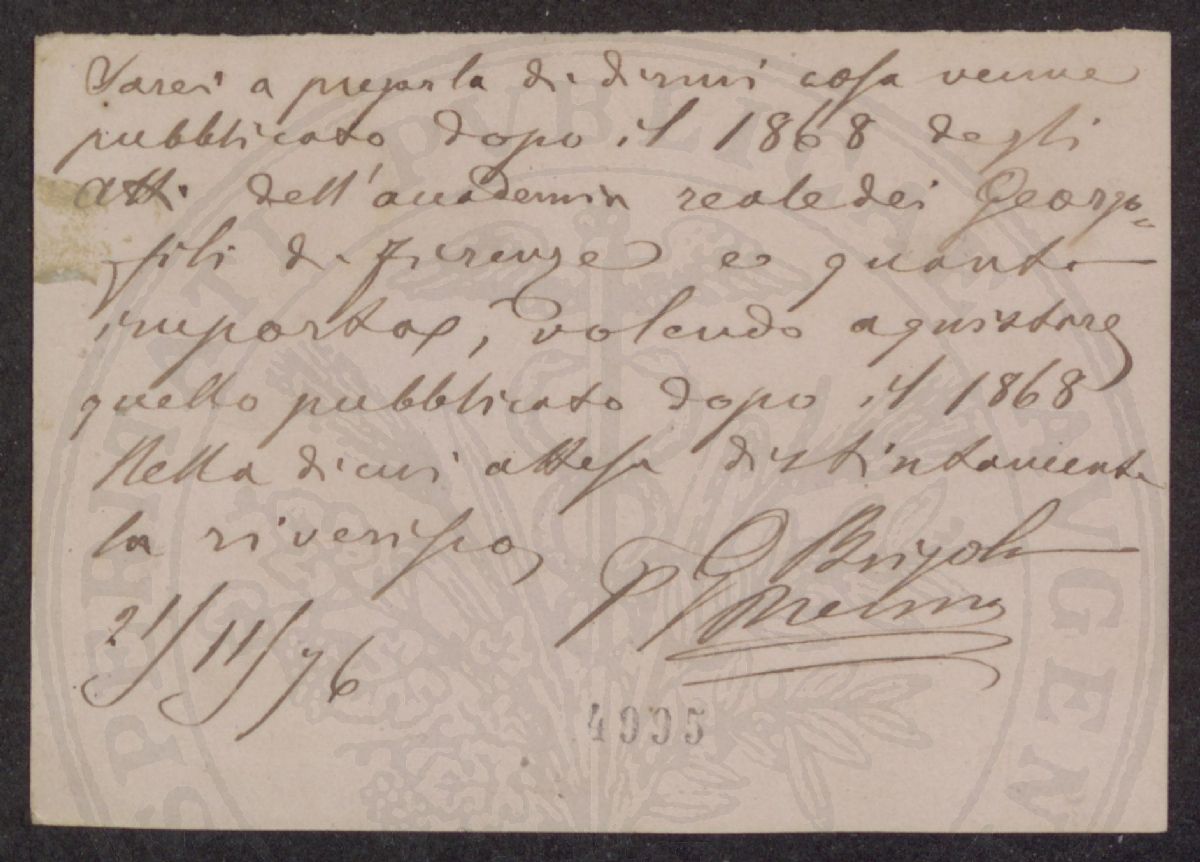 Sarei a pregarla di dirmi cosa venne
pubblicato dopo il 1868 degli
Atti dell'accademia reale dei Georgo=
fili di Firenze e quanto
importa, volendo aquistare
quello pubblicato dopo il 1868
Nella di cui attesa distintamente
la riverisco
P G Brigola
21/11/76
4995